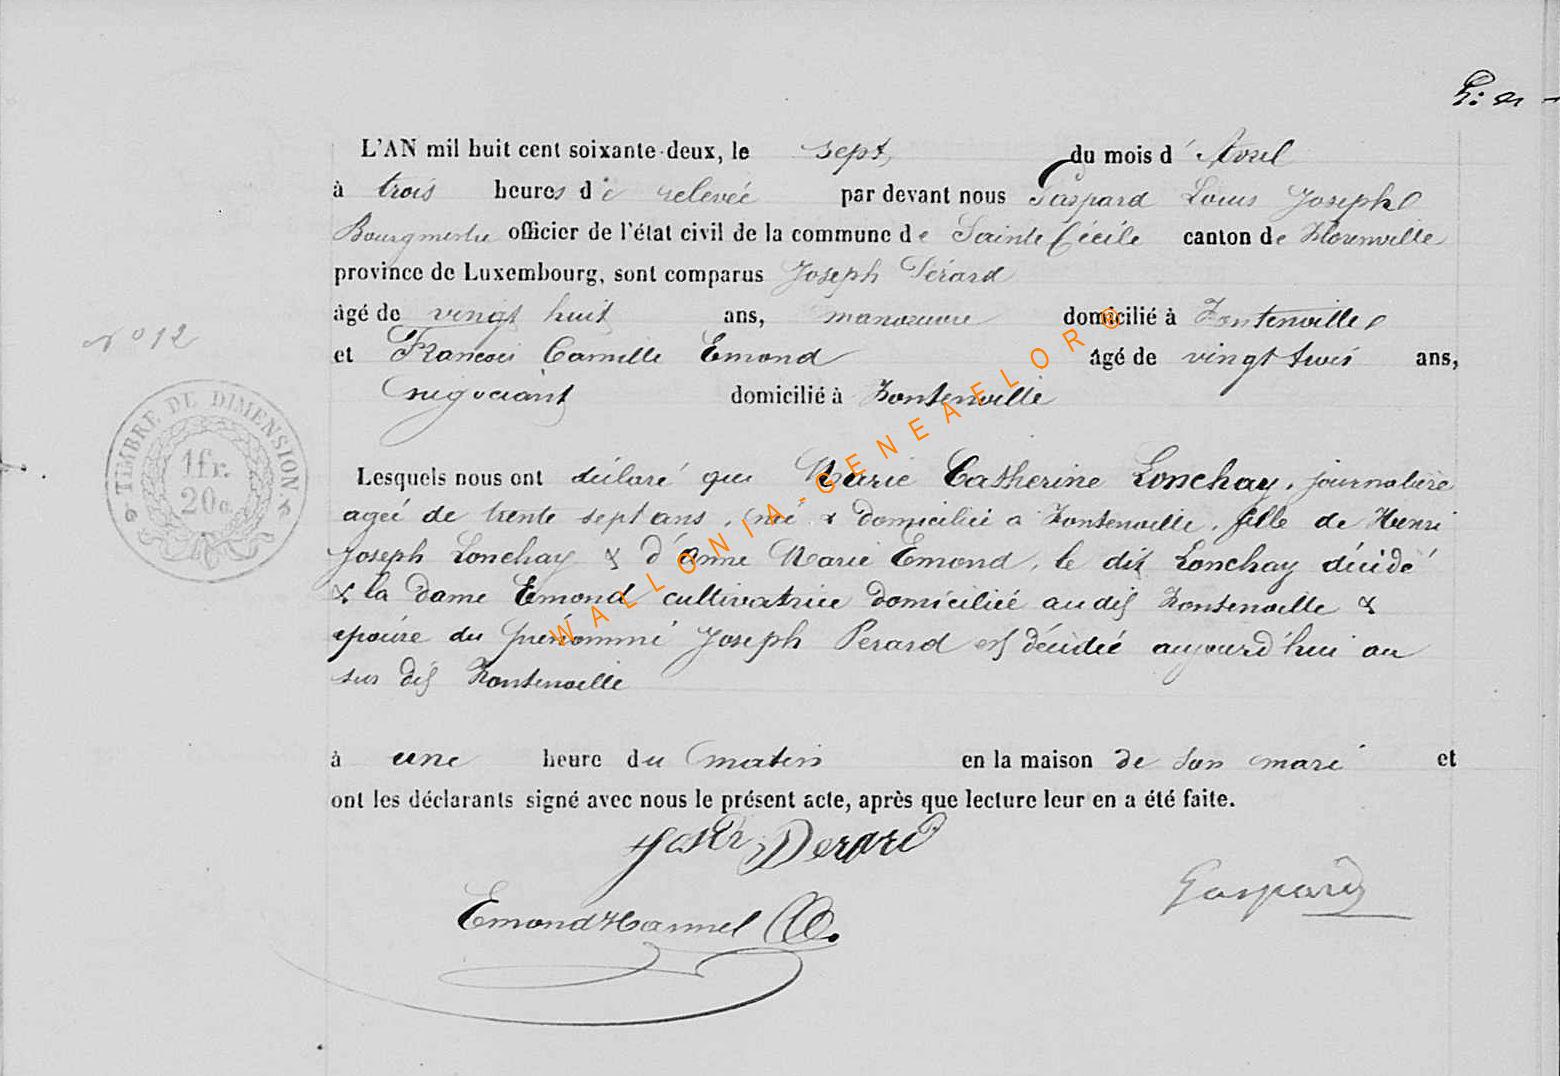 L'AN mil huit cent soixante-deux, le sept du mois d'Avril
à trois heures de relevée par devant nous Gaspard Louis Joseph
Bourgmestre officier de l'état civil de la commune de Sainte Cécile canton de Florenville
province de Luxembourg, sont comparus Joseph Pérard
âgé de vingt huit ans, manoeuvre domicilié à Fontenoille
n° 12
et François Camille Emond âgé de vingt trois ans,
négociant domicilié à Fontenoille
TIMBRE DE DIMENSION
1fr.
20c.
Lesquels nous ont déclaré que Marie Catherine Lonchay, journalière
agée de trente sept ans, née & domiciliée a Fontenoille, fille de Henri
Joseph Lonchay & d'Anne Marie Emond, le dit Lonchay décédé
& la dame Emond cultivatrice domiciliée audit Fontenoille &
épouse du prénommé Joseph Perard est décédée aujourd'hui au
sus dit Fontenoille
à une heure du matin en la maison de son mari et
ont les déclarants signé avec nous le présent acte, après que lecture leur en a été faite.
Perard
Gaspard
Emond Hannel
WALLONIA-GENEAFLOR®